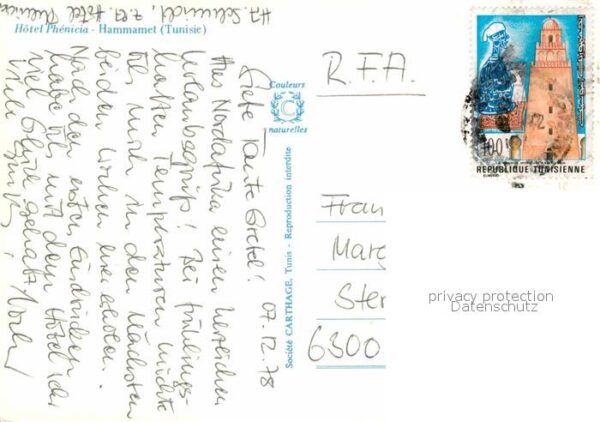 HJ. Schmidt, z. Zt. Hotel Phénicia
Hôtel Phénicia - Hammamet (Tunisie)
07.12.78
Gute Tante Gretel!
Aus Nordafrika einen herzlichen
Urlaubsgruß! Bei frühlings-
haften Temperaturen möchte
ich mich in den nächsten
beiden Wochen hier erholen.
Nach den ersten Eindrücken
habe ich mit dem Hotel hier
viel Glück gehabt.
Couleurs
C
naturelles
Société CARTHAGE, Tunis - Reproduction interdite
R.F.A.
100
REPUBLIQUE TUNISIENNE
Fran
Marg
Ster
6300
privacy protection
Datenschutz